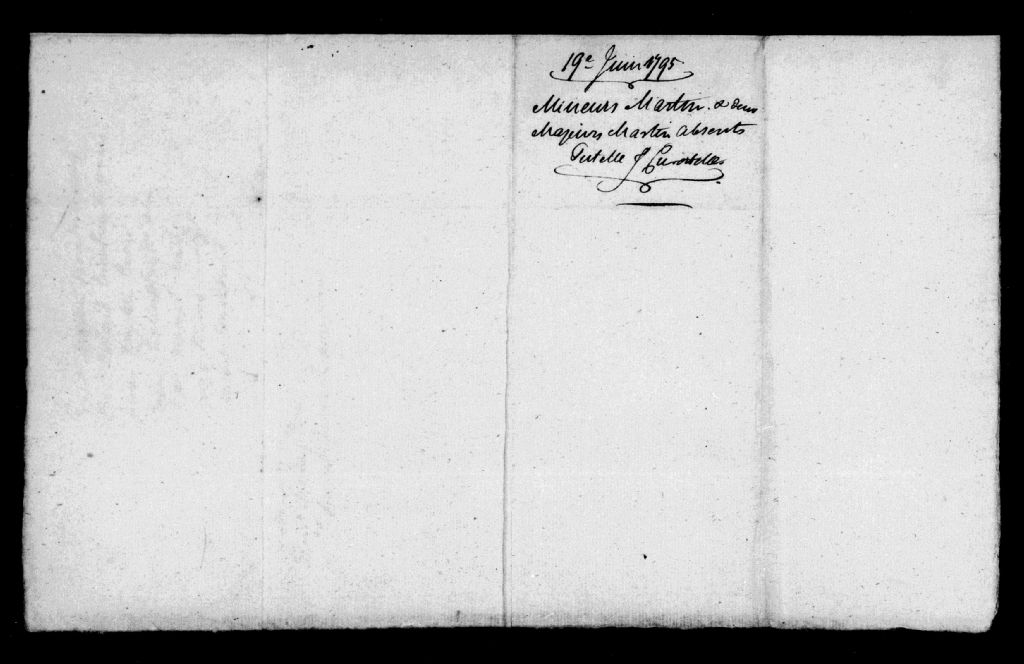 19e Juin 1795
Mineurs Martin & deux
Majeurs Martin absents
Tutelle & Curatelles